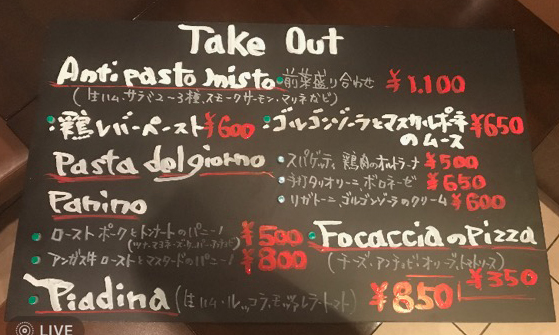 Take Out
Antipasto misto 前菜盛り合わせ ¥1,100
(生ハム、サラミ2〜3種、スモークサーモン・マリネなど)
鶏レバーペースト ¥600
ゴルゴンゾーラとマスカルポーネのムース ¥650
Pasta del giorno
スパゲッティ 鶏肉の ¥500
手打タリオリーニ ボロネーゼ ¥650
リガトーニ ゴルゴンゾーラのクリーム ¥600
Panino
ローストポークとトンナートのパニーノ ¥500
(ツナ・マヨネーズ・ケッパー・アンチョビ)
アンガス牛ローストとマスタードのパニーノ ¥800
FocacciaのPizza
(チーズ・アンチョビ・オリーブ、トマトソース)
¥350
Piadina (生ハム・ルッコラ、モッツァレラ・トマト) ¥850
LIVE